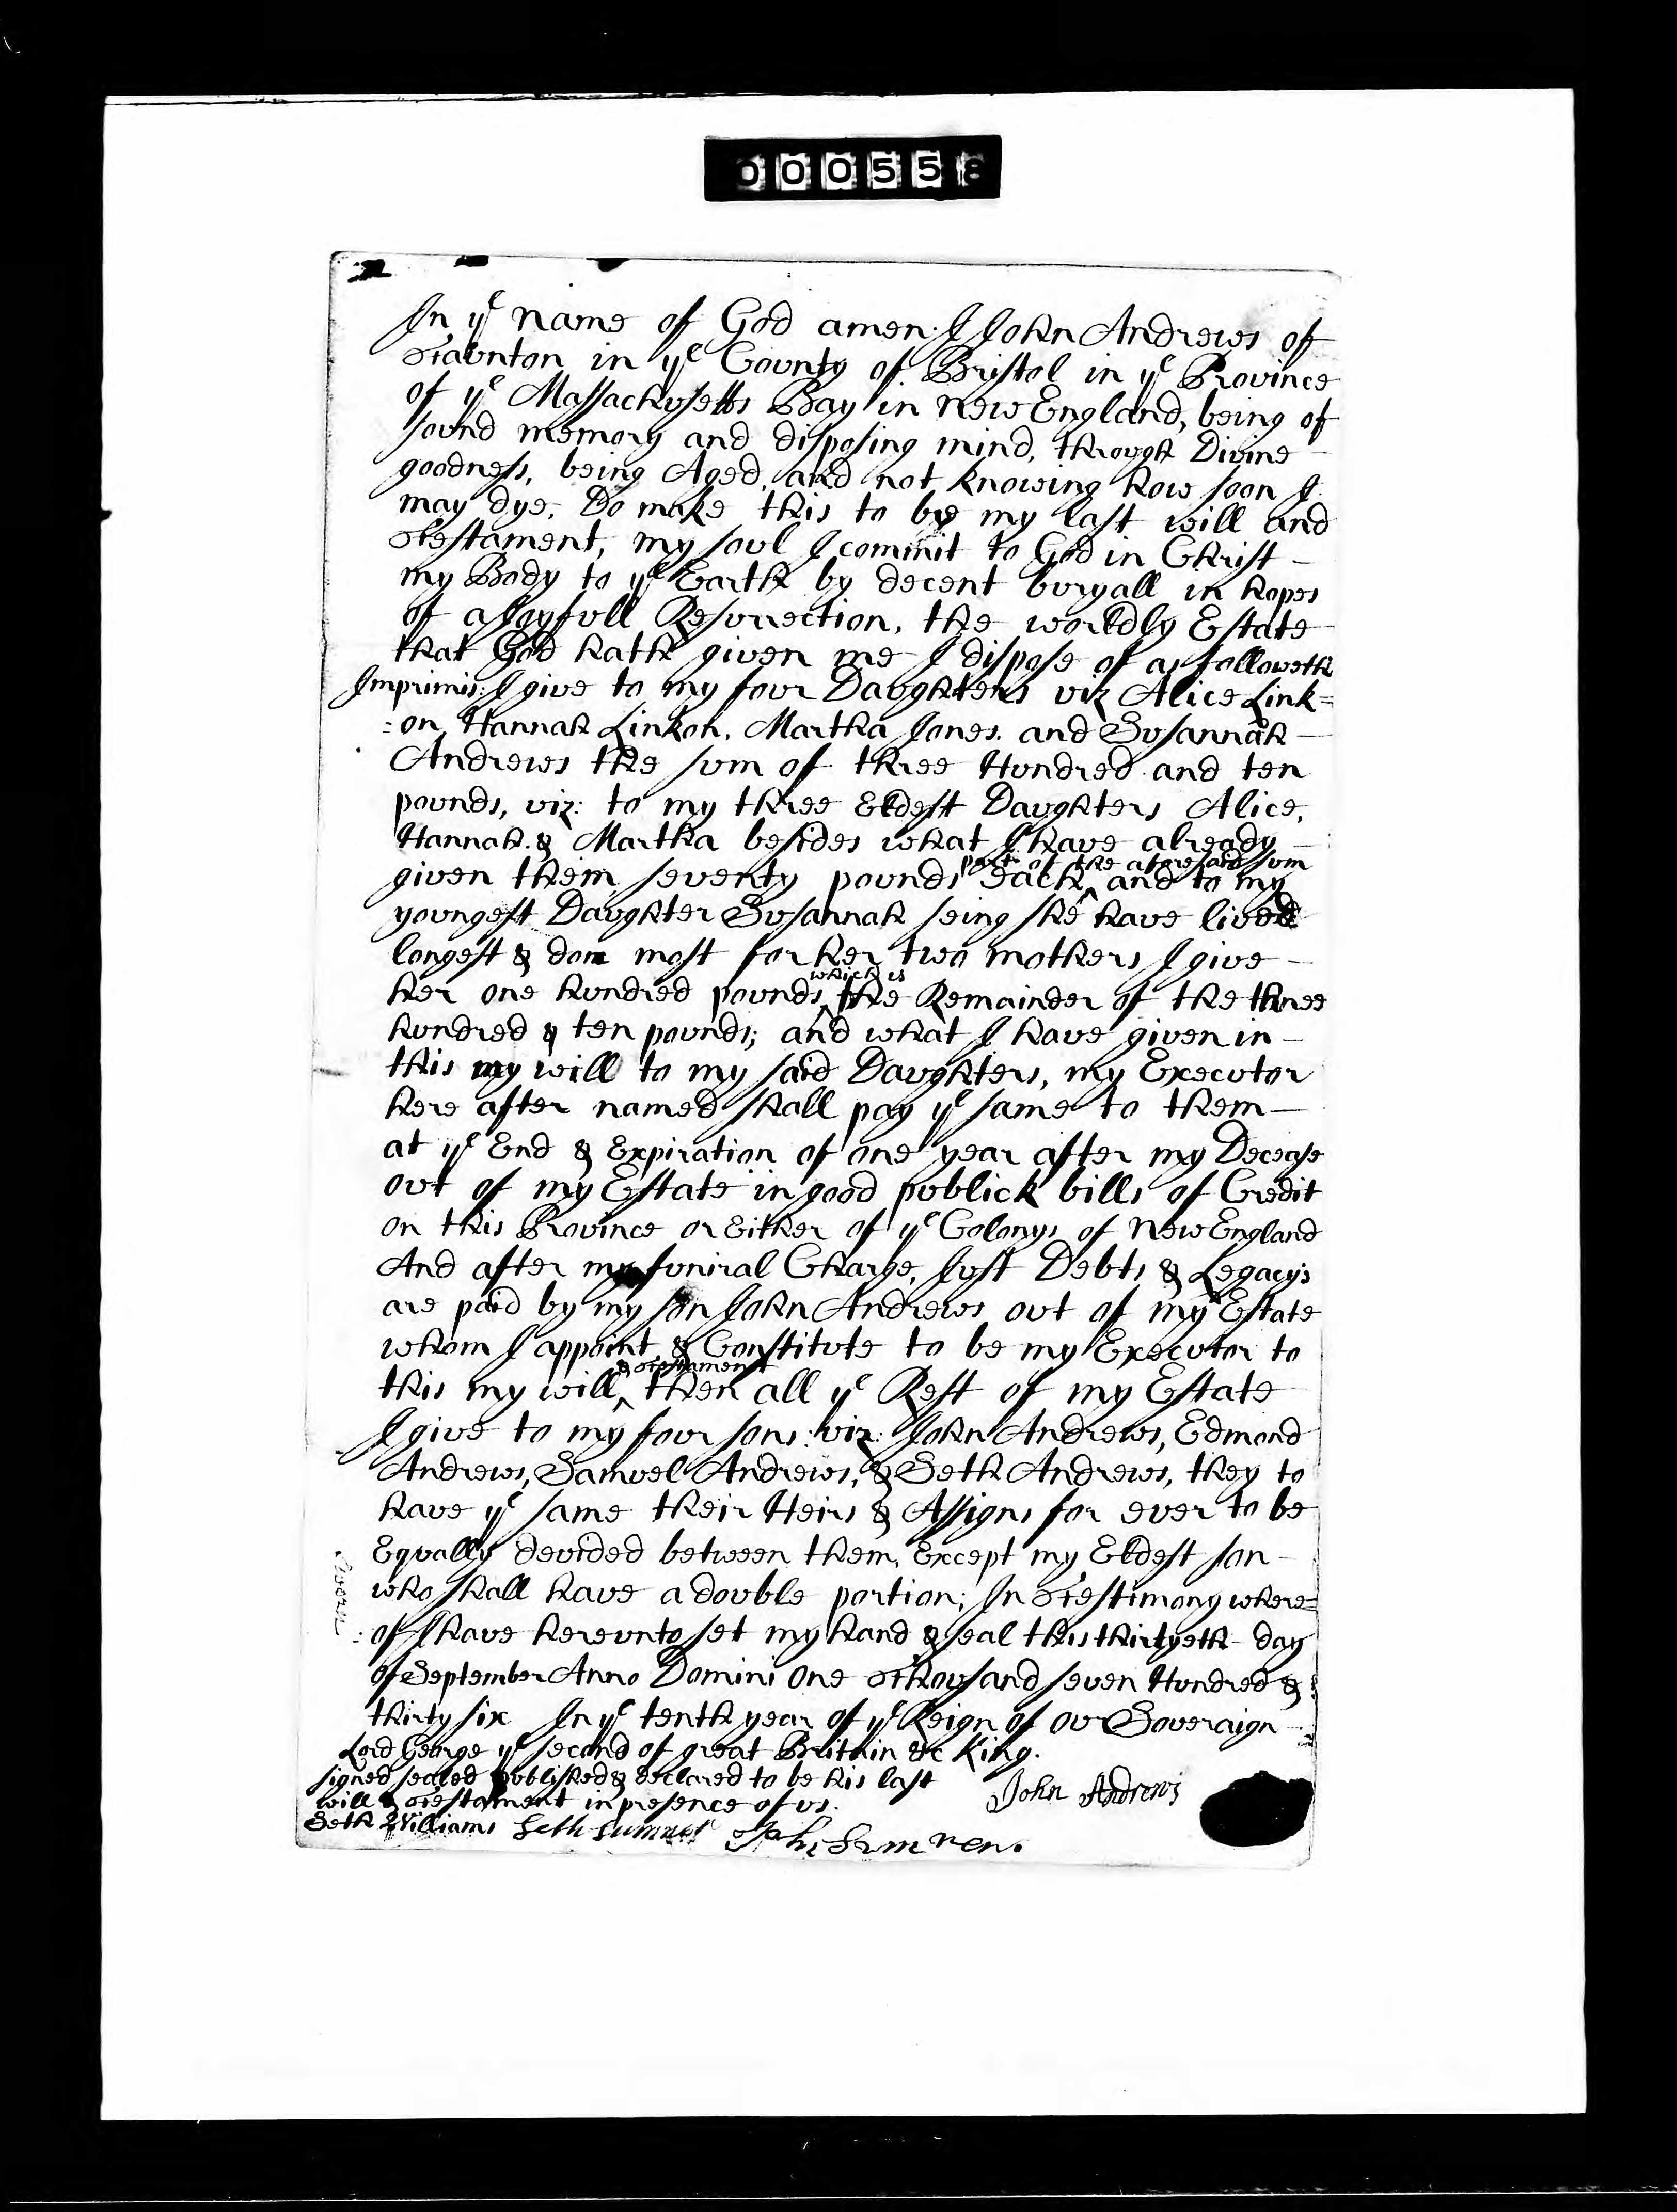 000558
In ye name of God amen. I John Andrews of
Taunton in ye County of Bristol in ye Province
of ye Massachusetts Bay in New England, being of
sound memory and disposing mind, through Divine
goodness, being Aged, and not knowing how soon I
may dye, Do make this to be my last will and
Testament, my soul I commit to God in Christ –
my Body to ye Earth by decent buryall in hopes
of a Joyfull Resurrection, the worldly Estate
that God hath given me I dispose of as followeth
Imprimis: I give to my four Daughters viz Alice Link=
=on, Hannah Linkon, Martha Jones, and Susannah –
Andrews the sum of three Hundred and ten
pounds, viz: to my three Eldest Daughters Alice,
Hannah & Martha besides what I have already –
part of the aforesaid sum
given them, seventy pounds each ^ and to my
youngest Daughter Susannah seing she have lived
longest & don most for her two mothers I give –
which is
her one hundred pounds, ^ the Remainder of the three
hundred & ten pounds; and what I have given in –
this my will to my said Daughters, my Executor
here after named shall pay ye same to them –
at ye End & Expiration of one year after my Decease
out of my Estate in good publick bills of Credit
on this Province or Either of ye Colonys of New England
And after my funiral Charge, Just Debts & Legacys
are paid by my son John Andrews out of my Estate
whom I appoint & Constitute to be my Executor to
& Testament
this my will ^ then all ye Rest of my Estate
I give to my four sons: viz: John Andrews, Edmond
Andrews, Samuel Andrews, & Seth Andrews, they to
have ye same their Heirs & Assigns for ever to be
Equally devided between them, Except my Eldest son –
who shall have a double portion; In Testimony where=
=of I have hereunto set my hand & seal this thirtyeth day
of September Anno Domini One Thousand seven Hundred &
thirty six In ye tenth year of ye Reign of our Soveraign
Lord George ye second of great Brittain &c King.
signed sealed published & declared to be his last
will & Testament in presence of us.
John Andrews
Seth Williams Seth Sumner
Sworn